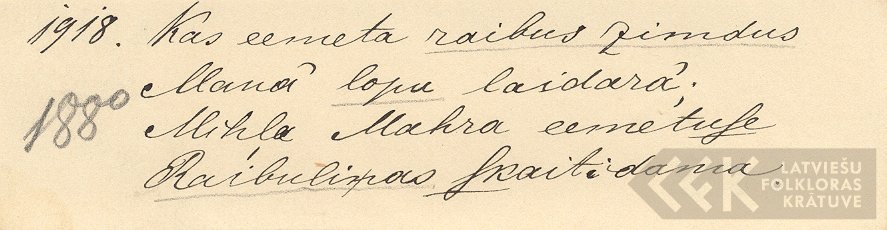 1918. Kas eemeta raibus zimdus
Manā lopu laidarā;
1880
Mihļa Mahra eemetuſe
Raibuliņas ſkaitidama.
LATVIEŠU
FOLKLORAS
KRĀTUVE